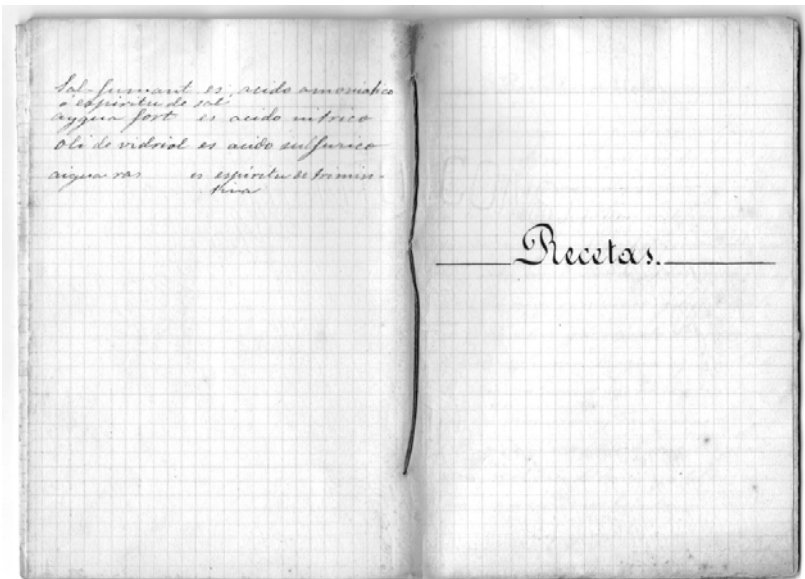 Sal-fumant es acido amoniatico
ó espiritu de sal
aygua fort es acido nitrico
Oli de vidriol es acido sulfurico
aigua ras es espiritu de trimin-
tina
Recetas.